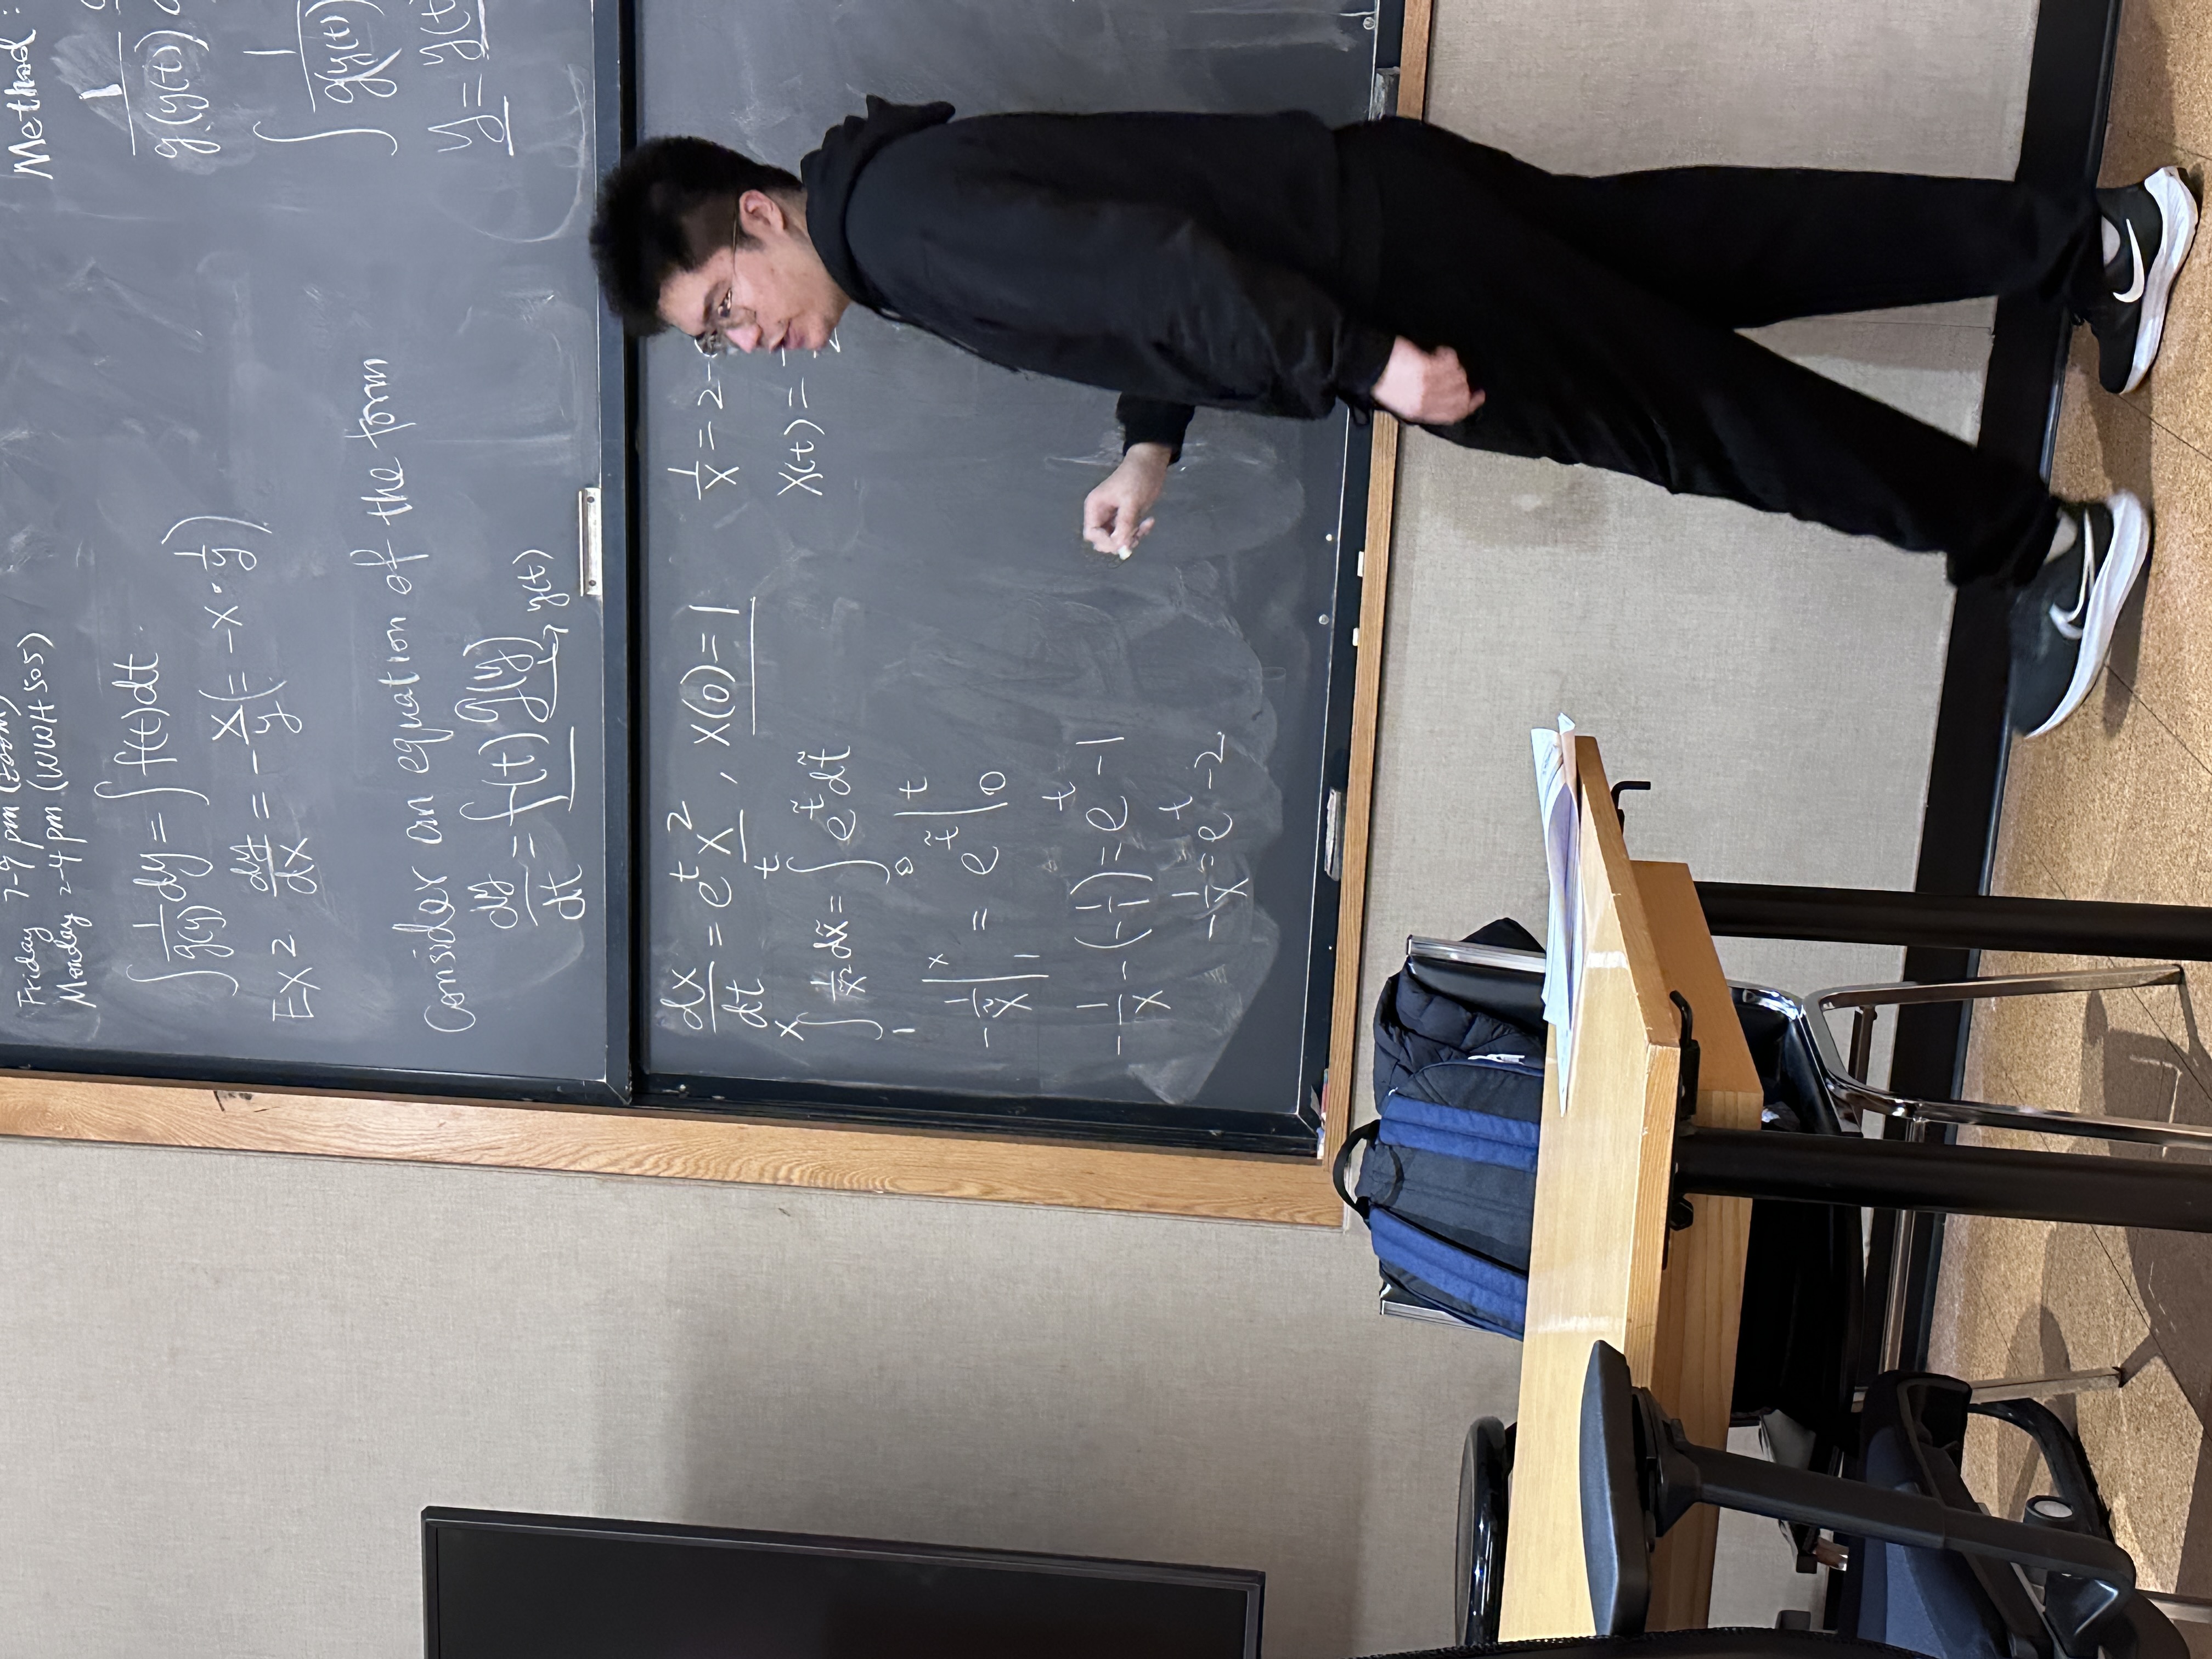 Friday 7-9 pm (zoom)
Monday 2-4 pm (WWH 505)
∫ 1/g(y) dy = ∫ f(t)dt
EX 2 dy/dx = - x/y (= -x · 1/y)
Consider an equation of the form
dy/dt = f(t) g(y) → y(t)
Method :
1/g(y(t))
∫ 1/g(y(t))
y = y(t
dx/dt = e^t x^2 , x(0) = 1
∫_1^x 1/x̃^2 dx̃ = ∫_0^t e^t̃ dt̃
- 1/x̃ |_1^x = e^t̃ |_0^t
- 1/x - (- 1/1) = e^t - 1
- 1/x = e^t - 2
1/x = 2 -
x(t) =